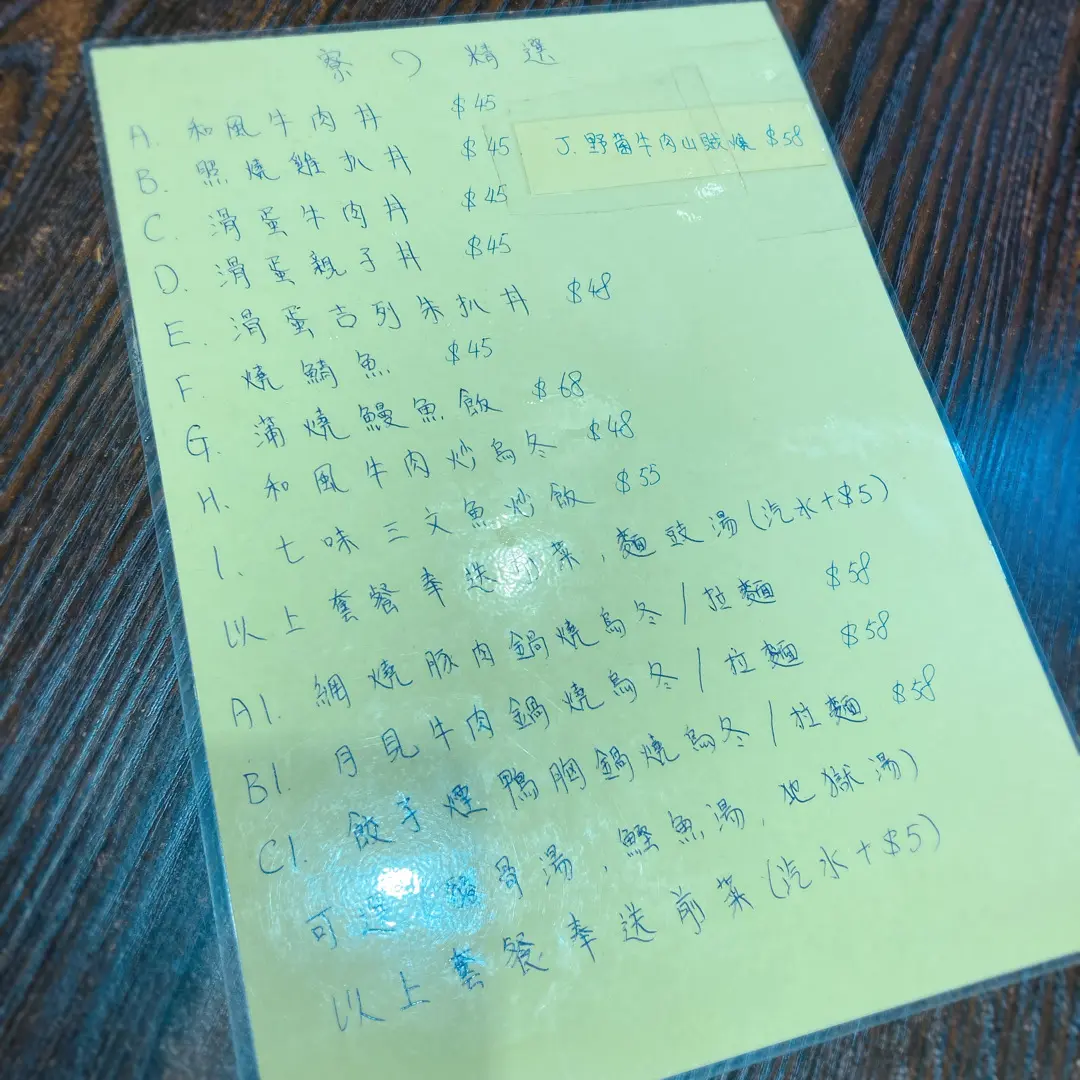 寮の精選
A. 和風牛肉丼 $45
B. 照燒雞扒丼 $45
C. 滑蛋牛肉丼 $45
D. 滑蛋親子丼 $45
E. 滑蛋吉列朱扒丼 $48
F. 燒鯖魚 $45
G. 蒲燒鰻魚飯 $68
H. 和風牛肉炒烏冬 $48
I. 七味三文魚炒飯 $55
J. 野菌牛肉山賊燒 $58
以上套餐奉送前菜,麵豉湯(汽水+$5)
A1. 網燒豚肉鍋燒烏冬/拉麵 $58
B1. 月見牛肉鍋燒烏冬/拉麵 $58
C1. 餃子煙鴨胸鍋燒烏冬/拉麵 $58
可選(豬骨湯,鰹魚湯,地獄湯)
以上套餐奉送前菜(汽水+$5)